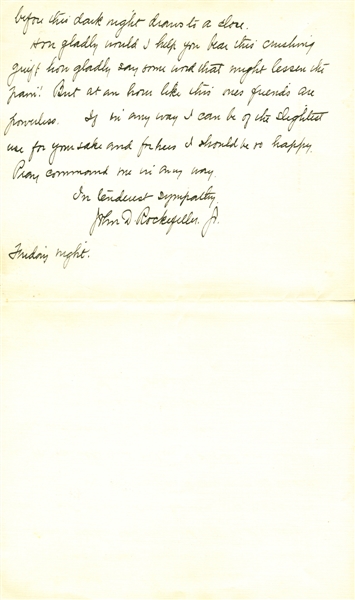 before this dark night draws to a close.
How gladly would I help you bear this crushing
grief, how gladly say some word that might lessen the
pain! But at an hour like this ones friends are
powerless. If in any way I can be of the slightest
use for your sake and for hers I should be so happy.
Pray command me in any way.
In tenderest sympathy
John D. Rockefeller, Jr.
Friday night.